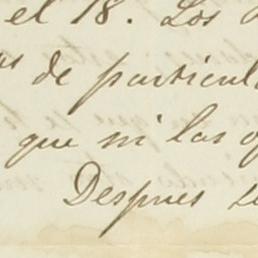 el 18. Los
de particul
que ni las
Despues